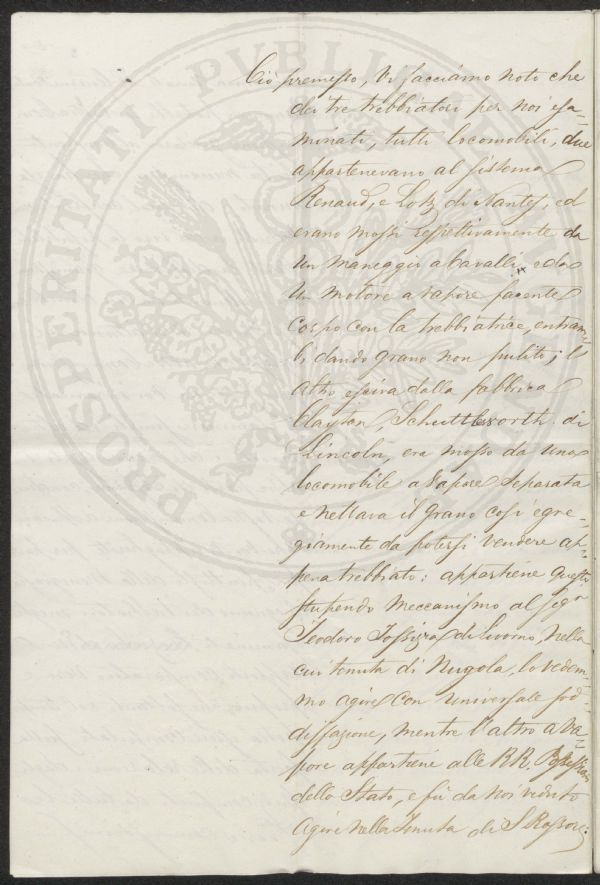 Ciò premesso, Vi facciamo noto che
dei tre trebbiatori per noi esa=
minati, tutti locomobili, due
appartenevano al sistema
Renaud, e Lotz di Nantes, ed
erano mossi respettivamente da
un maneggio a cavalli, e da
un motore a vapore facente
corpo con la trebbiatrice, entram
bi dando grano non pulito; l'
altro esciva dalla fabbrica
Clayton, Schuttleworth di
Lincoln, era mosso da una
locomobile a vapore separata
e nettava il grano così egre=
giamente da potersi vendere ap=
pena trebbiato: appartiene questo
stupendo meccanismo al Sigr
Teodoro di Livorno, nella
cui tenuta di Nugola, lo vedem=
mo agire con universale sod=
disfazione, mentre l'altro a va=
pore appartiene alle RR. Possessioni
dello Stato, e fù da noi veduto
agire nella Tenuta di S. Rossore;
PROSPERITATI PUBLICAE